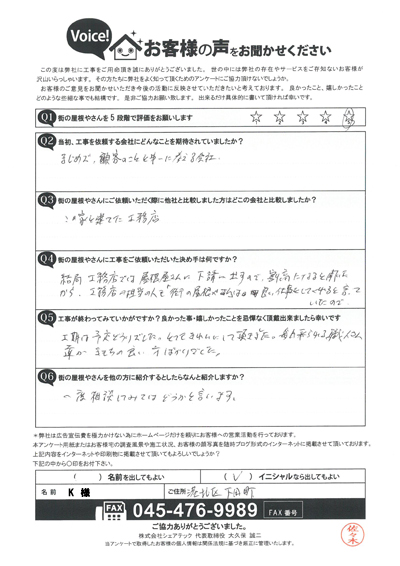 Voice!
お客様の声をお聞かせください
この度は弊社に工事をご用命頂き誠にありがとうございました。世の中には弊社の存在やサービスをご存知ないお客様が
沢山いらっしゃいます。その方たちに弊社をよく知って頂くためのアンケートにご協力頂けないでしょうか。
お客様のご意見をお聞かせいただき今後の活動に反映させていただきたいと考えております。良かったこと。嬉しかったこと
どのような些細な事でも結構です。是非ご協力お願い致します。出来るだけ具体的に書いて頂ければ幸いです。
Q1 街の屋根やさんを5段階で評価をお願いします ☆ ☆ ☆ ☆ ☆
Q2 当初、工事を依頼する会社にどんなことを期待されていましたか?
まじめで、顧客のことを第一に考える会社
Q3 街の屋根やさんにご依頼いただく際に他社と比較しました方はどこの会社と比較しましたか?
この家を建てた工務店
Q4 街の屋根やさんに工事をご依頼いただいた決め手は何ですか?
結局工務店では屋根屋さんに下請に出すので、割高になると
から、工務店の担当の人も「街の屋根やさんは
いたので
Q5 工事が終わってみていかがですか?良かった事・嬉しかったことを忌憚なく頂戴出来ましたら幸いです
工期は予定どうりでした。とてもきれいにして頂きました。
きもちの良い方ばかりでした。
Q6 街の屋根やさんを他の方に紹介するとしたらなんと紹介しますか?
一度相談してみてはどうかと言います。
＊弊社は広告宣伝費を極力かけない為にホームページだけを頼りにお客様への営業活動を行っております。
本アンケート用紙またはお客様宅の調査風景や施工状況、お客様の顔写真を随時ブログ形式のインターネットに掲載させて頂いております。
上記内容をインターネットや印刷物に掲載させて頂いてもよろしいでしょうか?
下記の中から〇印をお付下さい。
( ) 名前を出してもよい ( ✓ ) イニシャルなら出してもよい
名前 K 様 ご住所 港北区下田町
FAX 045-476-9989 FAX番号
ご協力ありがとうございました。
株式会社シェアテック 代表取締役 大久保 誠二
当アンケートで取得したお客様の個人情報は関係法規に基づき厳正に管理いたします。
佐々木